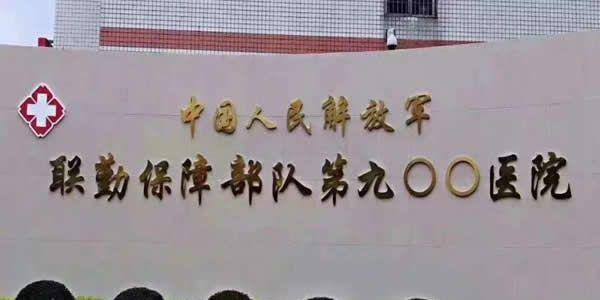 中国人民解放军
联勤保障部队第九〇〇医院